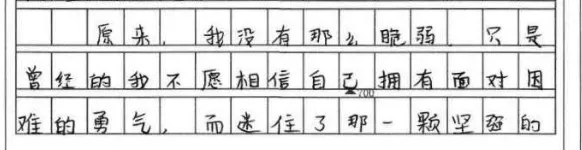 原来，我没有那么脆弱，只是
曾经的我不愿相信自己拥有面对困
700
难的勇气，而迷住了那一颗坚强的